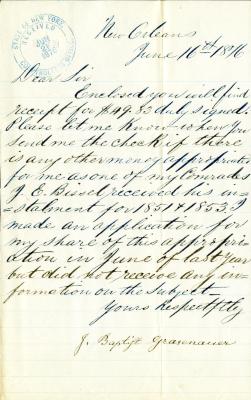 STATE OF NEW YORK
RECEIVED
New Orleans
June 16th 1876
Dear Sir
Enclosed you will find
receipt for $49.33 duly signed.
Please let me know when you
send me the check if there
is any other money appropriated
for me as one of my Comrades
J. E. Bissel received his in=
=stalment for 1851 & 1853. I
made an application for
my share of this appropri=
=ation in June of last year
but did not receive any in=
=formation on the subject—
Yours Respectfully
J. Baptist